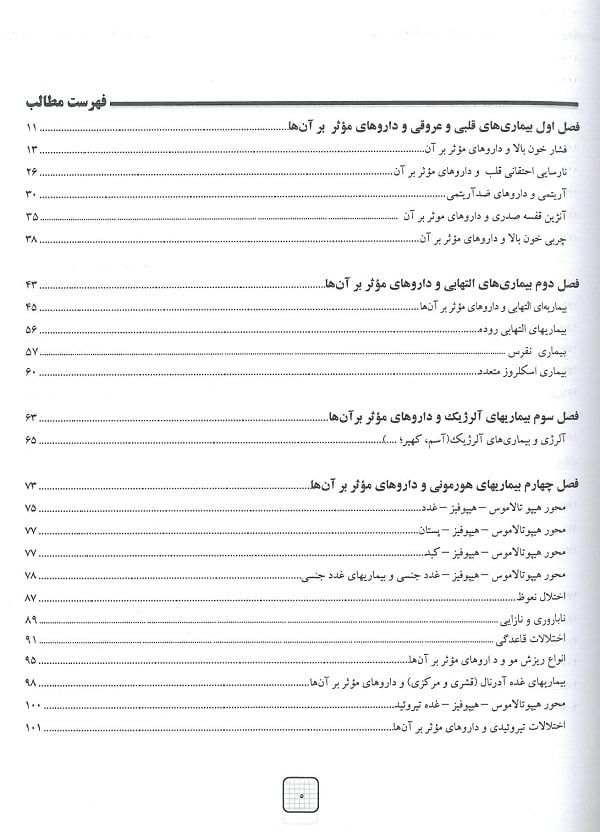 فهرست مطالب
فصل اول بیماری‌های قلبی و عروقی و داروهای مؤثر بر آن‌ها ۱۱
فشار خون بالا و داروهای مؤثر بر آن ۱۳
نارسایی احتقانی قلب و داروهای مؤثر بر آن ۲۶
آریتمی و داروهای ضدآریتمی ۳۰
آنژین قفسه صدری و داروهای موثر بر آن ۳۵
چربی خون بالا و داروهای مؤثر بر آن ۳۸
فصل دوم بیماری‌های التهابی و داروهای مؤثر بر آن‌ها ۴۳
بیماریهای التهابی و داروهای مؤثر بر آن‌ها ۴۵
بیماریهای التهابی روده ۵۶
بیماری نقرس ۵۷
بیماری اسکلروز متعدد ۶۰
فصل سوم بیماریهای آلرژیک و داروهای مؤثر برآن‌ها ۶۳
آلرژی و بیماری‌های آلرژیک(آسم، کهیر؛ ....) ۶۵
فصل چهارم بیماریهای هورمونی و داروهای مؤثر بر آن‌ها ۷۳
محور هیپو تالاموس – هیپوفیز – غدد ۷۵
محور هیپوتالاموس – هیپوفیز – پستان ۷۷
محور هیپوتالاموس – هیپوفیز – کبد ۷۷
محور هیپوتالاموس – هیپوفیز – غدد جنسی و بیماریهای غدد جنسی ۷۸
اختلال نعوظ ۸۷
ناباروری و نازایی ۸۹
اختلالات قاعدگی ۹۱
انواع ریزش مو و داروهای مؤثر بر آن‌ها ۹۵
بیماریهای غده آدرنال (قشری و مرکزی) و داروهای مؤثر بر آن‌ها ۹۸
محور هیپوتالاموس – هیپوفیز – غده تیروئید ۱۰۰
اختلالات تیروئیدی و داروهای مؤثر بر آن‌ها ۱۰۱
۵